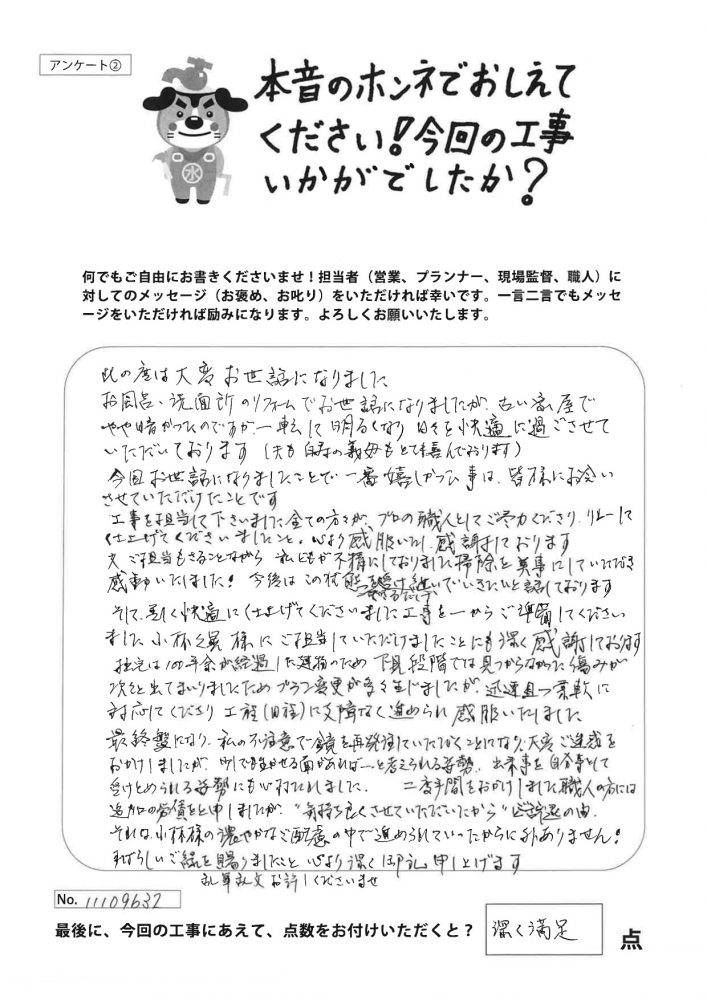 アンケート②
本音のホンネでおしえて
ください!今回の工事
いかがでしたか?
水
何でもご自由にお書きくださいませ!担当者(営業、プランナー、現場監督、職人)に
対してのメッセージ(お褒め、お叱り)をいただければ幸いです。一言二言でもメッセ
ージをいただければ励みになります。よろしくお願いいたします。
此の度は大変お世話になりました
お風呂、洗面所のリフォームでお世話になりましたが、古い家屋で
やや暗かったのですが一転して明るくなり日々を快適に過ごさせて
いただいております(夫も 義母もとても喜んでおります)
今回お世話になりましたことで一番嬉しかった事は、皆様にお会い
させていただけたことです
工事を担当して下さいました全ての方々が、プロの職人としてご尽力くださり、リレーして
仕上げてくださいましたこと、心より感服いたし感謝しております
又ご担当もさることながら私どもが不精にしておりました掃除を見事にしていただき
感動いたしました!今後はこの状態を受け継いでいきたいと話しております
できるだけ
そして、美しく快適に仕上げてくださいました工事を一からご準備してください
ました小林 様にご担当していただけましたことにも深く感謝しております
拙宅は100年余が経過した建物のため下見段階では見つからなかった傷みが
次々と出てまいりましたためプラン変更が多々生じましたが、迅速且つ柔軟に
対応してくださり工程(日程)に支障なく進められ感服いたしました
最終盤になり、私の不注意で鏡を再発注していただくことになり大変ご迷惑を
おかけしましたが、少しでも 面があれば…と考えられる姿勢、出来事を自分事として
受けとめられる姿勢にも心打たれました。 二度手間をおかけしました職人の方には
追加の労賃をと申しましたが、"気持ち良くさせていただいたから"とご辞退の由、
それは小林様の濃やかなご配慮の中で進められていったからに外ありません!
すばらしいご縁を賜りましたこと心より深く御礼申し上げます
乱筆乱文お許しくださいませ
No. 11109632
最後に、今回の工事にあえて、点数をお付けいただくと? 深く満足 点